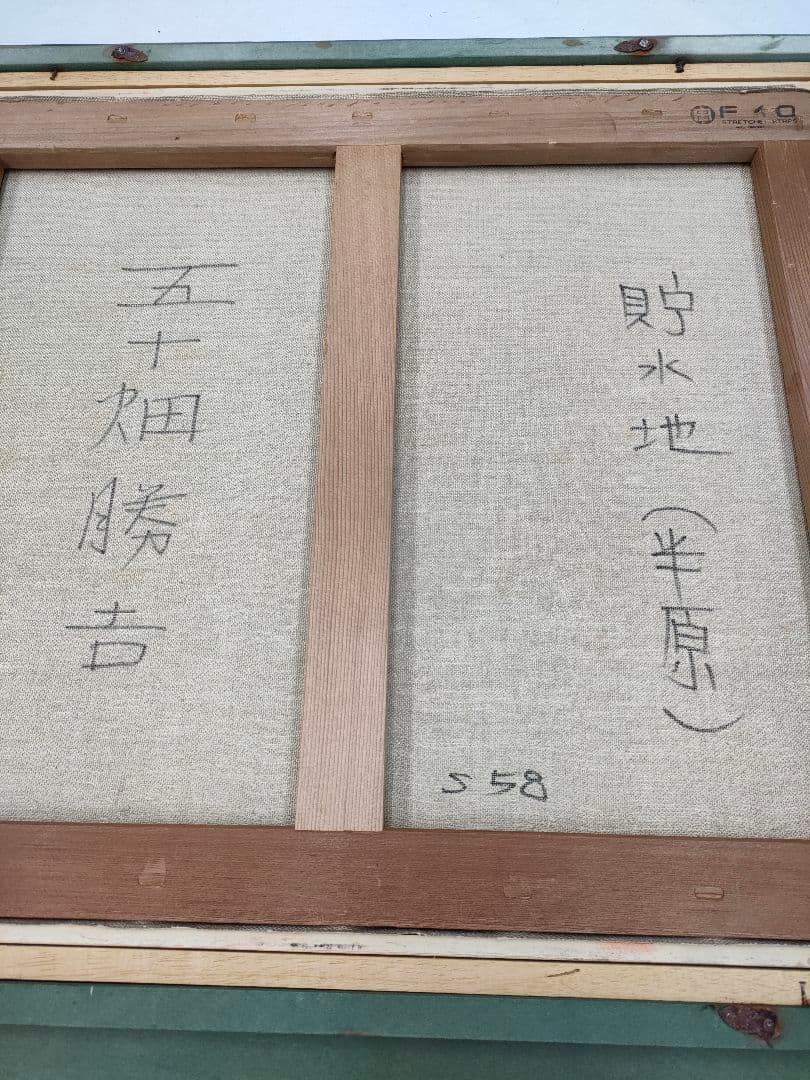 貯水地(半原)
S 58
五十畑勝吉
F 10
STRETCHER STRIPS